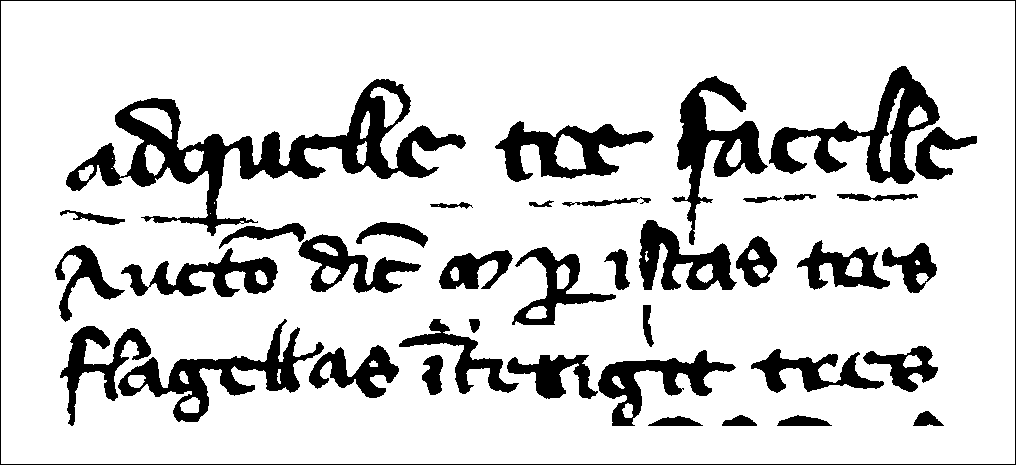 adquelle tre facelle
Auctō dic̄ ꝑ istas tres
flagellas īterigit tres